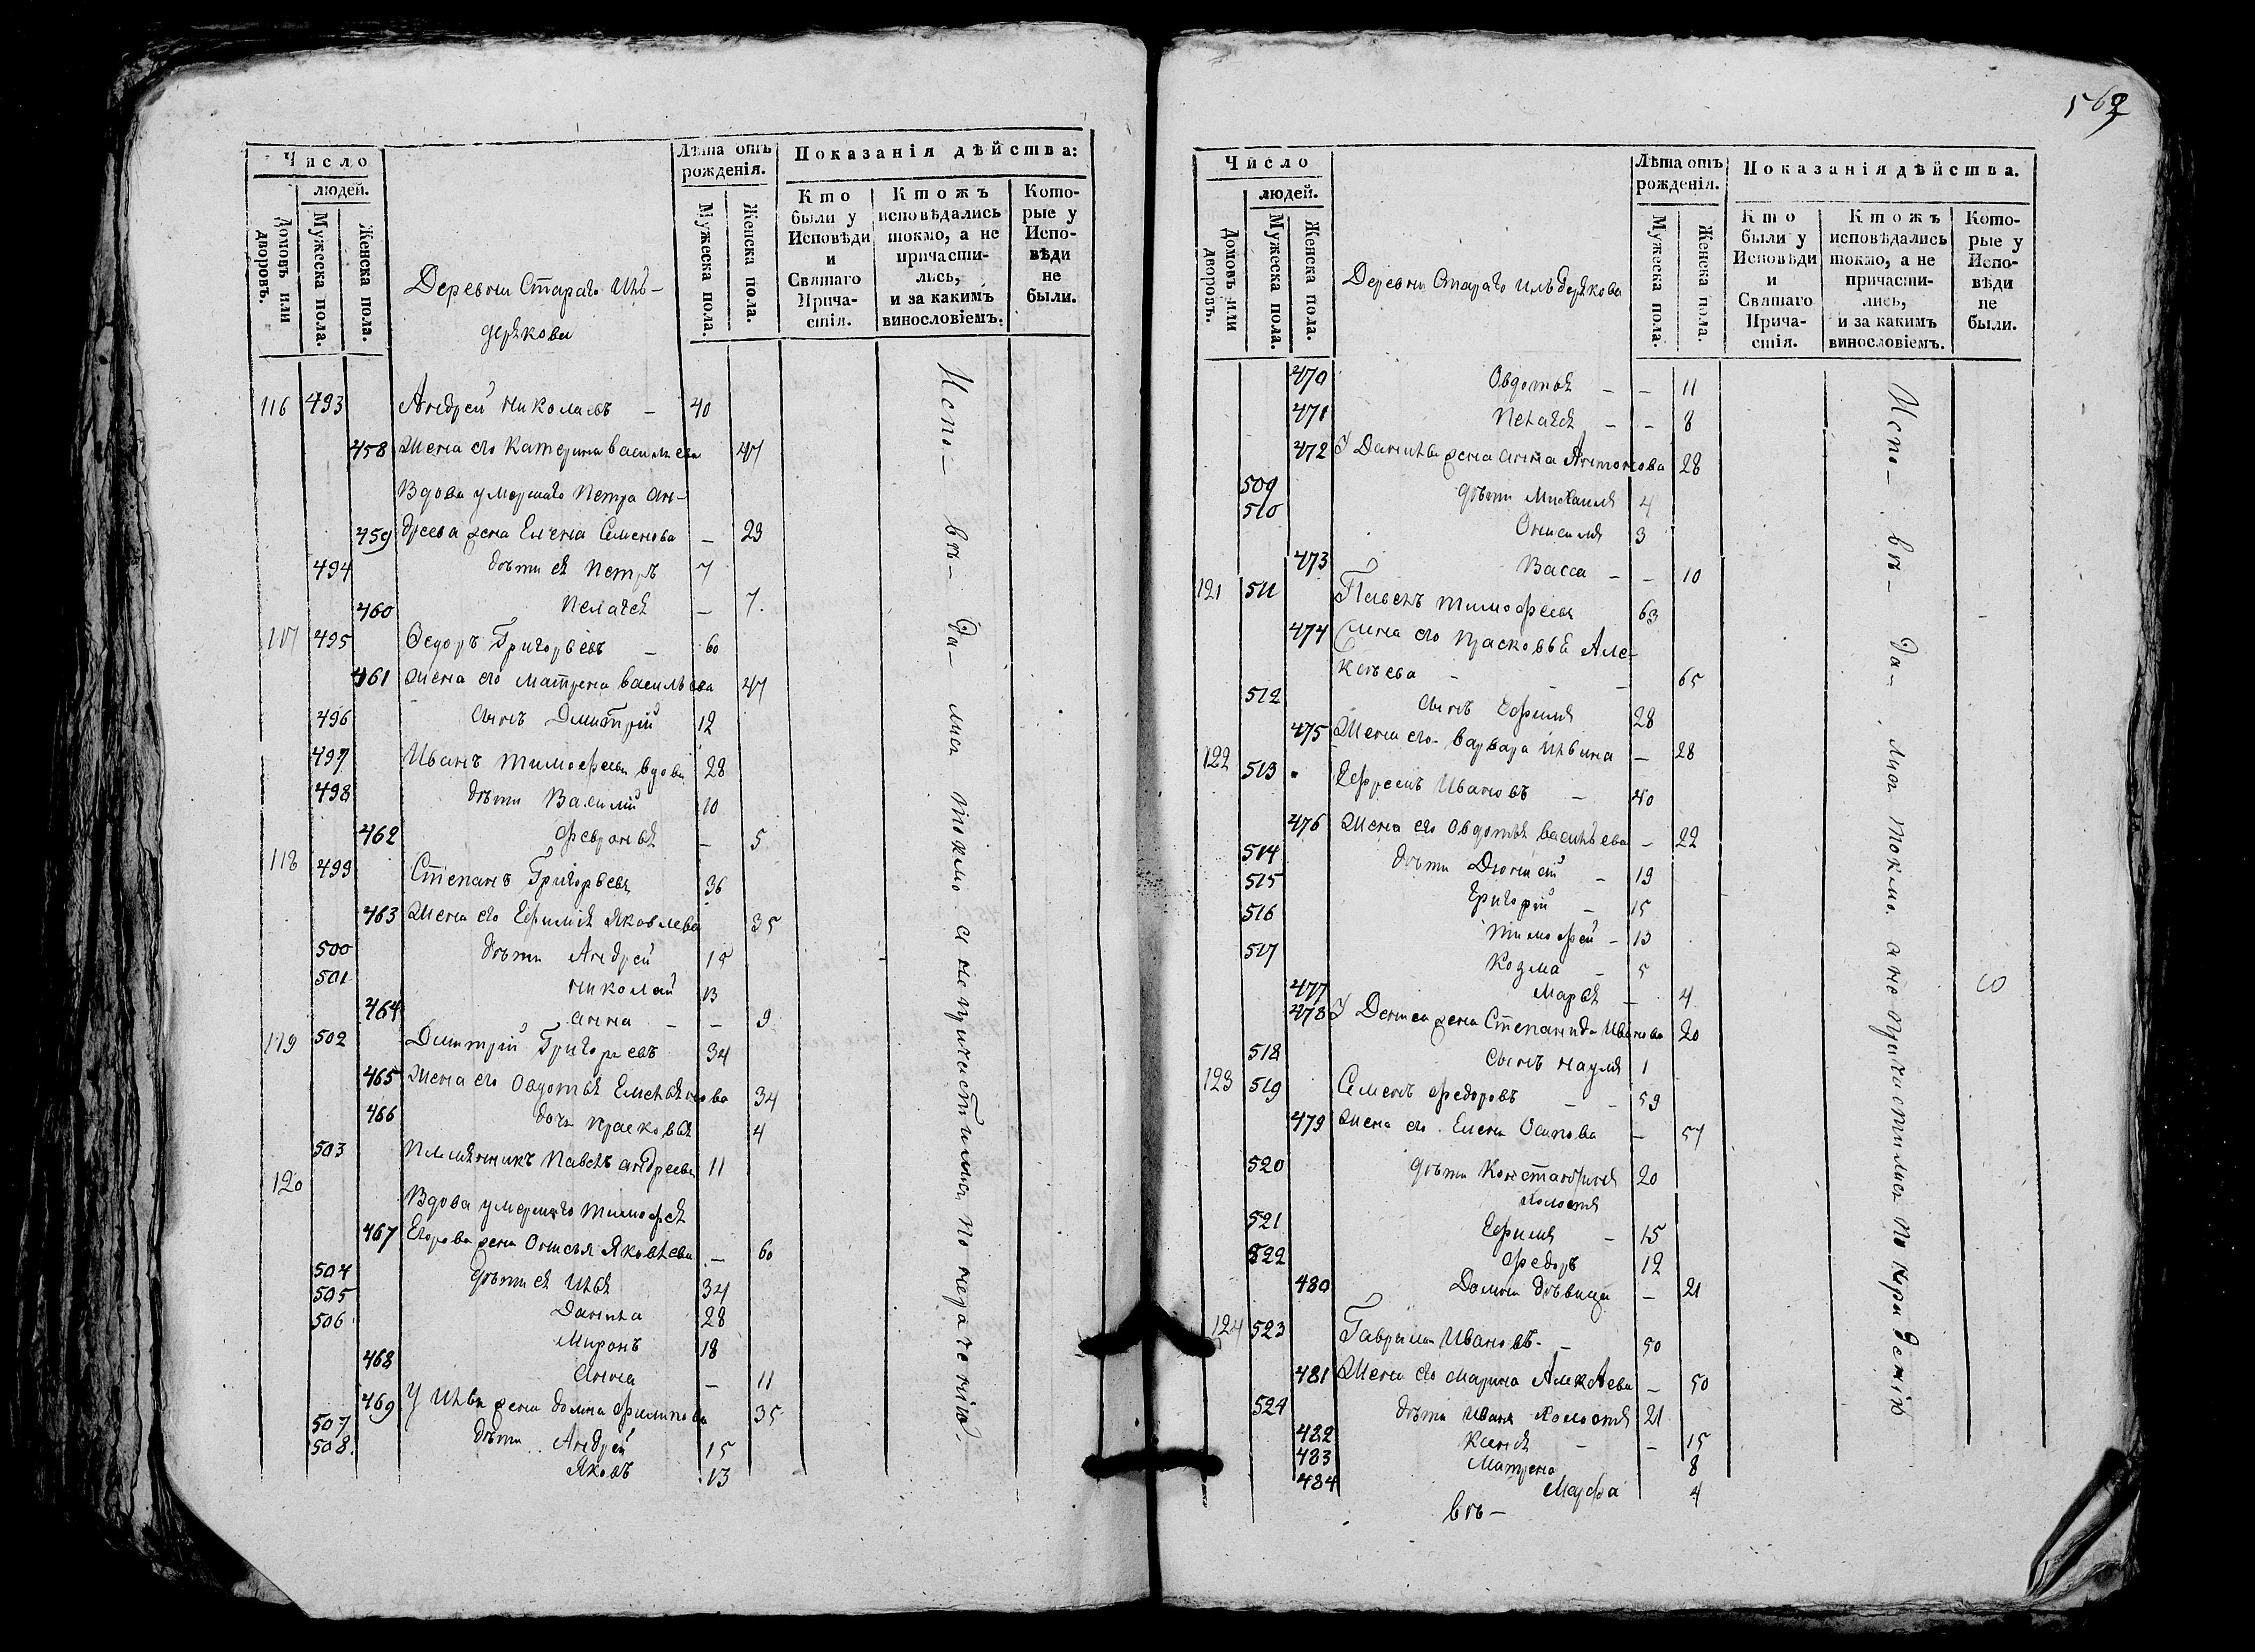 Число
людей.
Домовъ или дворовъ.
Мужеска пола.
Женска пола.
Деревни Стараго Иль-
дерякова
Лѣта отъ рожденія.
Мужеска пола.
Женска пола.
Показанія дѣйства:
Кто были у Исповѣди и Святаго Прича-стія.
Ктожъ исповѣдались токмо, а не причасти-лись, и за какимъ винословіемъ.
Кото-рые у Испо-вѣди не были.
116 493 Андрей Николаевъ — 40
458 Жена его Катерина Васильева 47
Вдова умершаго Петра Ан-
459 дреева жена Елена Семенова — 23
494 дѣти ея Петръ 7
460 Пелагея — 7.
117 495 Ѳедоръ Григорьевъ — 60
461 Жена его Матрена Васильева 47
496 Сынъ Дмитрій 12
497 Иванъ Тимофеевъ вдовъ 28
498 дѣти Василій 10
462 Февронья — 5
118 499 Степанъ Григорьевъ 36
463 Жена его Ефимья Яковлева 35
500 дѣти Андрей 15
501 Николай 13
464 Анна — — 9
119 502 Дмитрій Григорьевъ 34
465 Жена его Овдотья Емельянова 34
466 дочь Прасковья 4
503 Племянникъ Павелъ Андреевъ 11
120 Вдова умершаго Тимофея
467 Егорова жена Онисья Яковлева — 60
504 дѣти ея Илья 34
505 Данила 28
506 Миронъ 18
468 Анна — 11
469 У Ильи жена Домна Филипова 35
507 дѣти Андрей 15
508. Яковъ 13
Испо- вѣ- да- лись токмо а не причастились по нерачению.
569
Число
людей.
Домовъ или дворовъ.
Мужеска пола.
Женска пола.
Деревни Стараго Ильдерякова
Лѣта отъ рожденія.
Мужеска пола.
Женска пола.
Показанія дѣйства.
Кто были у Исповѣди и Святаго Прича-стія.
Ктожъ исповѣдались токмо, а не причасти-лись, и за какимъ винословіемъ.
Кото-рые у Испо-вѣди не были.
470 Овдотья — — 11
471 Пелагея — — 8
472 У Данилы жена Анна Антонова 28
509 дѣти Михаила 4
510 3
473 Васса — — 10
121 511 Павелъ Тимофеевъ 63
474 Жена его Прасковья Але-
ксѣева — — — 65
512 Сынъ Ефимъ 28
475 Жена его Варвара Ильина — 28
122 513 Ефремъ Ивановъ — 40
476 Жена его Овдотья Васильева — 22
514 дѣти — 19
515 Григорій — 15
516 Тимофей — 13
517 Козма — 5
477 Марья — 4
478 У Дениса жена Степанида Иванова 20
518 Сынъ Наумъ 1
123 519 Семенъ Федоровъ — — 59
479 Жена его Елена Осипова — 57
520 дѣти Константинъ 20
холостъ
521 Ефимъ — 15
522 Федоръ 12
480 Домна дѣвица — 21
124 523 Гаврила Ивановъ — 50
481 Жена его Марина Алексѣева — 50
524 дѣти Иванъ холостъ 21
482 Ксенья — — 15
483 Матрена 8
484 Марфа 4
вѣ—
Испо- вѣ- да- лись токмо а не причастились по нерадению